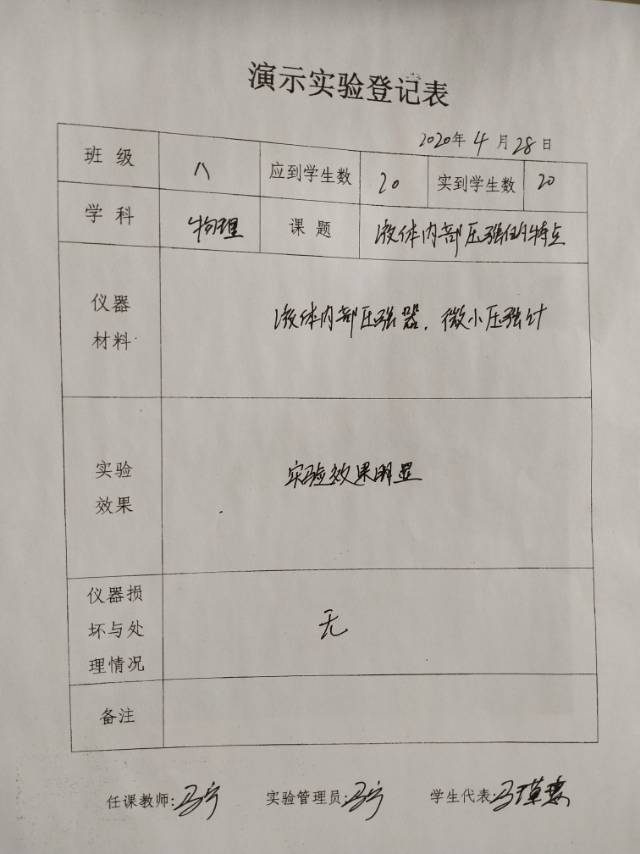 演示实验登记表
2020年4月28日
班级 八 应到学生数 20 实到学生数 20
学科 物理 课题 液体内部压强的特点
仪器
材料
液体内部压强器、微小压强计
实验
效果
实验效果明显
仪器损
坏与处
理情况
无
备注
任课教师:马宁 实验管理员:马宁 学生代表:马